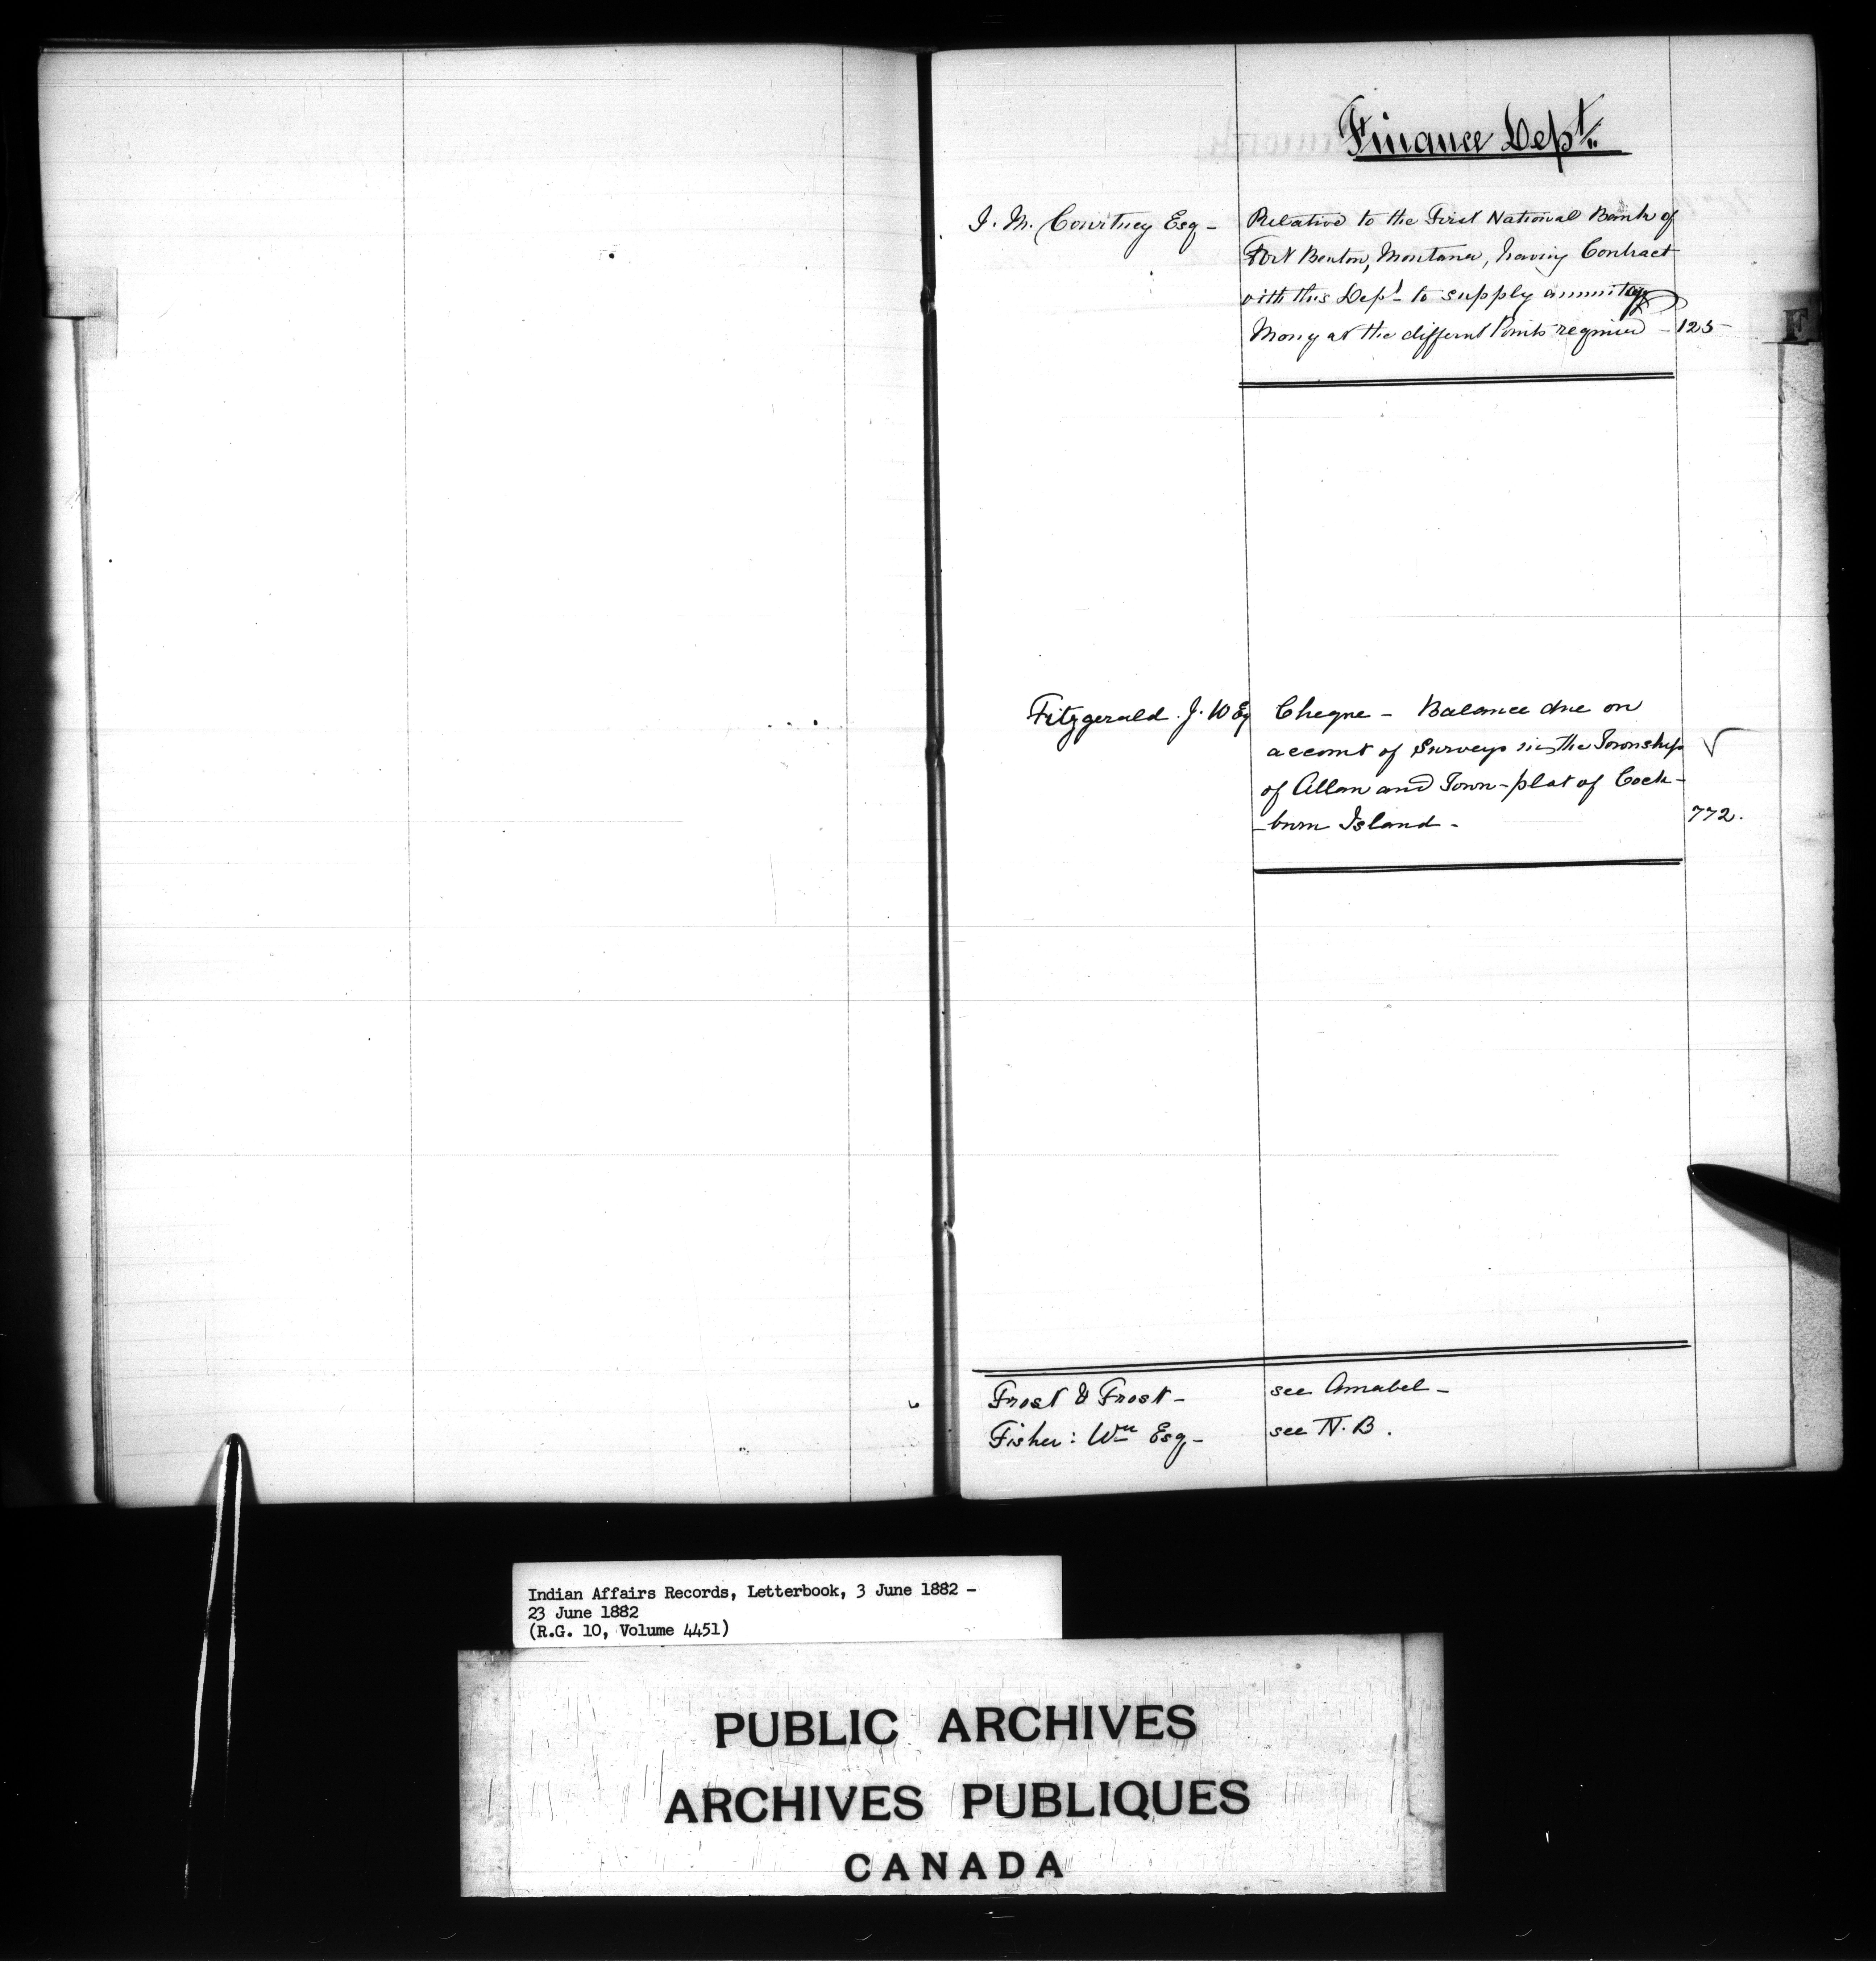 Finance Dept.
J. M. Courtney Esq - Relative to the First National Bank of
Fort Benton, Montana, having Contract
with this Dept - to supply annuity
Mony at the differnt Points required - 125 -
F
Fitzgerald. J. W Eq Cheque - Balance due on
account of Surveys in the Township √
of Allan and Town-plat of Cock-
-burn Island - 772.
Frost & Frost - see Amabel -
Fisher: Wm Esq - see N. B.
Indian Affairs Records, Letterbook, 3 June 1882 -
23 June 1882
(R.G. 10, Volume 4451)
PUBLIC ARCHIVES
ARCHIVES PUBLIQUES
CANADA